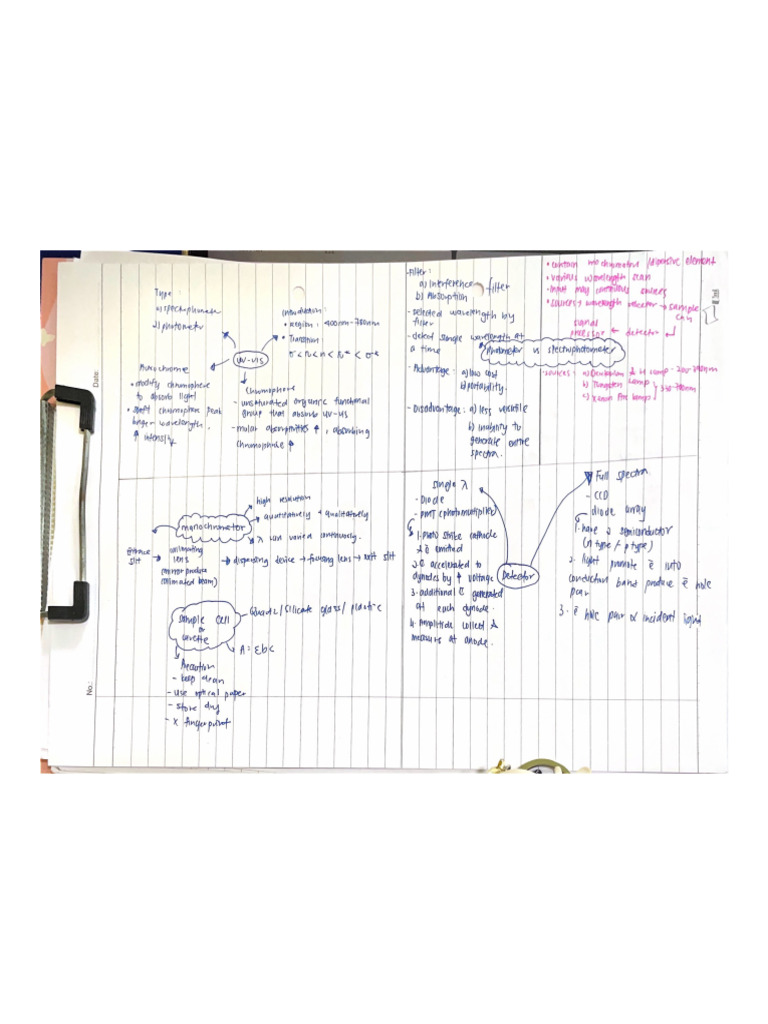 Date:
No.:
Type:
a) spectrophotometer
b) photometer
Introduction:
• Region: 400nm - 780nm
• Transition:
UV-VIS
Auxochrome
• modify chromophore
to absorb light
• shift chromophore peak
longer wavelength.
↑ intensity
Chromophore
- unsaturated organic functional
group that absorb UV-VIS
- molar absorptivities ↑, absorbing
chromophore ↑
- Filter:
a) Interference filter
b) Absorption
- selected wavelength by
filter
- detect sample wavelength at
a time
- Advantage: a) low cost
b) portability.
- Disadvantage: a) less versatile
b) inability to
generate entire
spectra.
Photometer vs spectrophotometer
• contain monochromator / dispersive element
• various wavelength scan
• input may continuous sources
• sources → wavelength selector → sample
signal ← detector ←
processor
sources: a) Deuterium & H lamp - 200-
b) Tungsten lamp
c) Xenon lamp
monochromator
high resolution
quantitatively + qualitatively
λ can varied continuously.
entrance → collimating → dispersing device → focusing lens → exit slit
slit lens
(mirror produce
collimated beam)
sample cell
or
cuvette
Quartz / Silicate glass / plastic
A = εbc
Precaution
- keep clean
- use optical paper
- store dry
- x fingerprint
Detector
Single λ
- Diode
- PMT (photomultiplier)
1. photo strike cathode
& ē emitted
2. ē accelerated to
dynodes by ↑ voltage
3. additional ē generated
at each dynode.
4. Amplitude collect &
measure at anode.
Full spectra
- CCD
- diode array
1. have 2 semiconductor
(n type / p type)
2. light promote ē into
conduction band produce ē hole
pair
3. ē hole pair α incident light